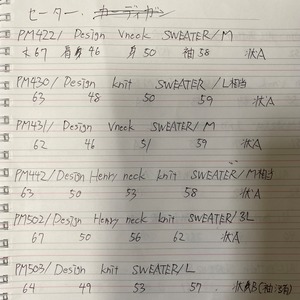 ヒーター、カーディガン
PM422/ Design Vneck SWEATER/M
丈67 肩身46 身50 袖58 状A
PM430/ Design knit SWEATER/L相当
63 48 50 59 状A
PM431/ Design Vneck SWEATER/M
62 46 51 59 状A
PM442/Design Henry neck knit SWEATER/M相当
63 50 53 58 状A
PM502/Design Henry neck knit SWEATER/3L
67 50 56 62 状A
PM503/Design knit SWEATER/L
64 49 53 57 状態B(袖汚れ)